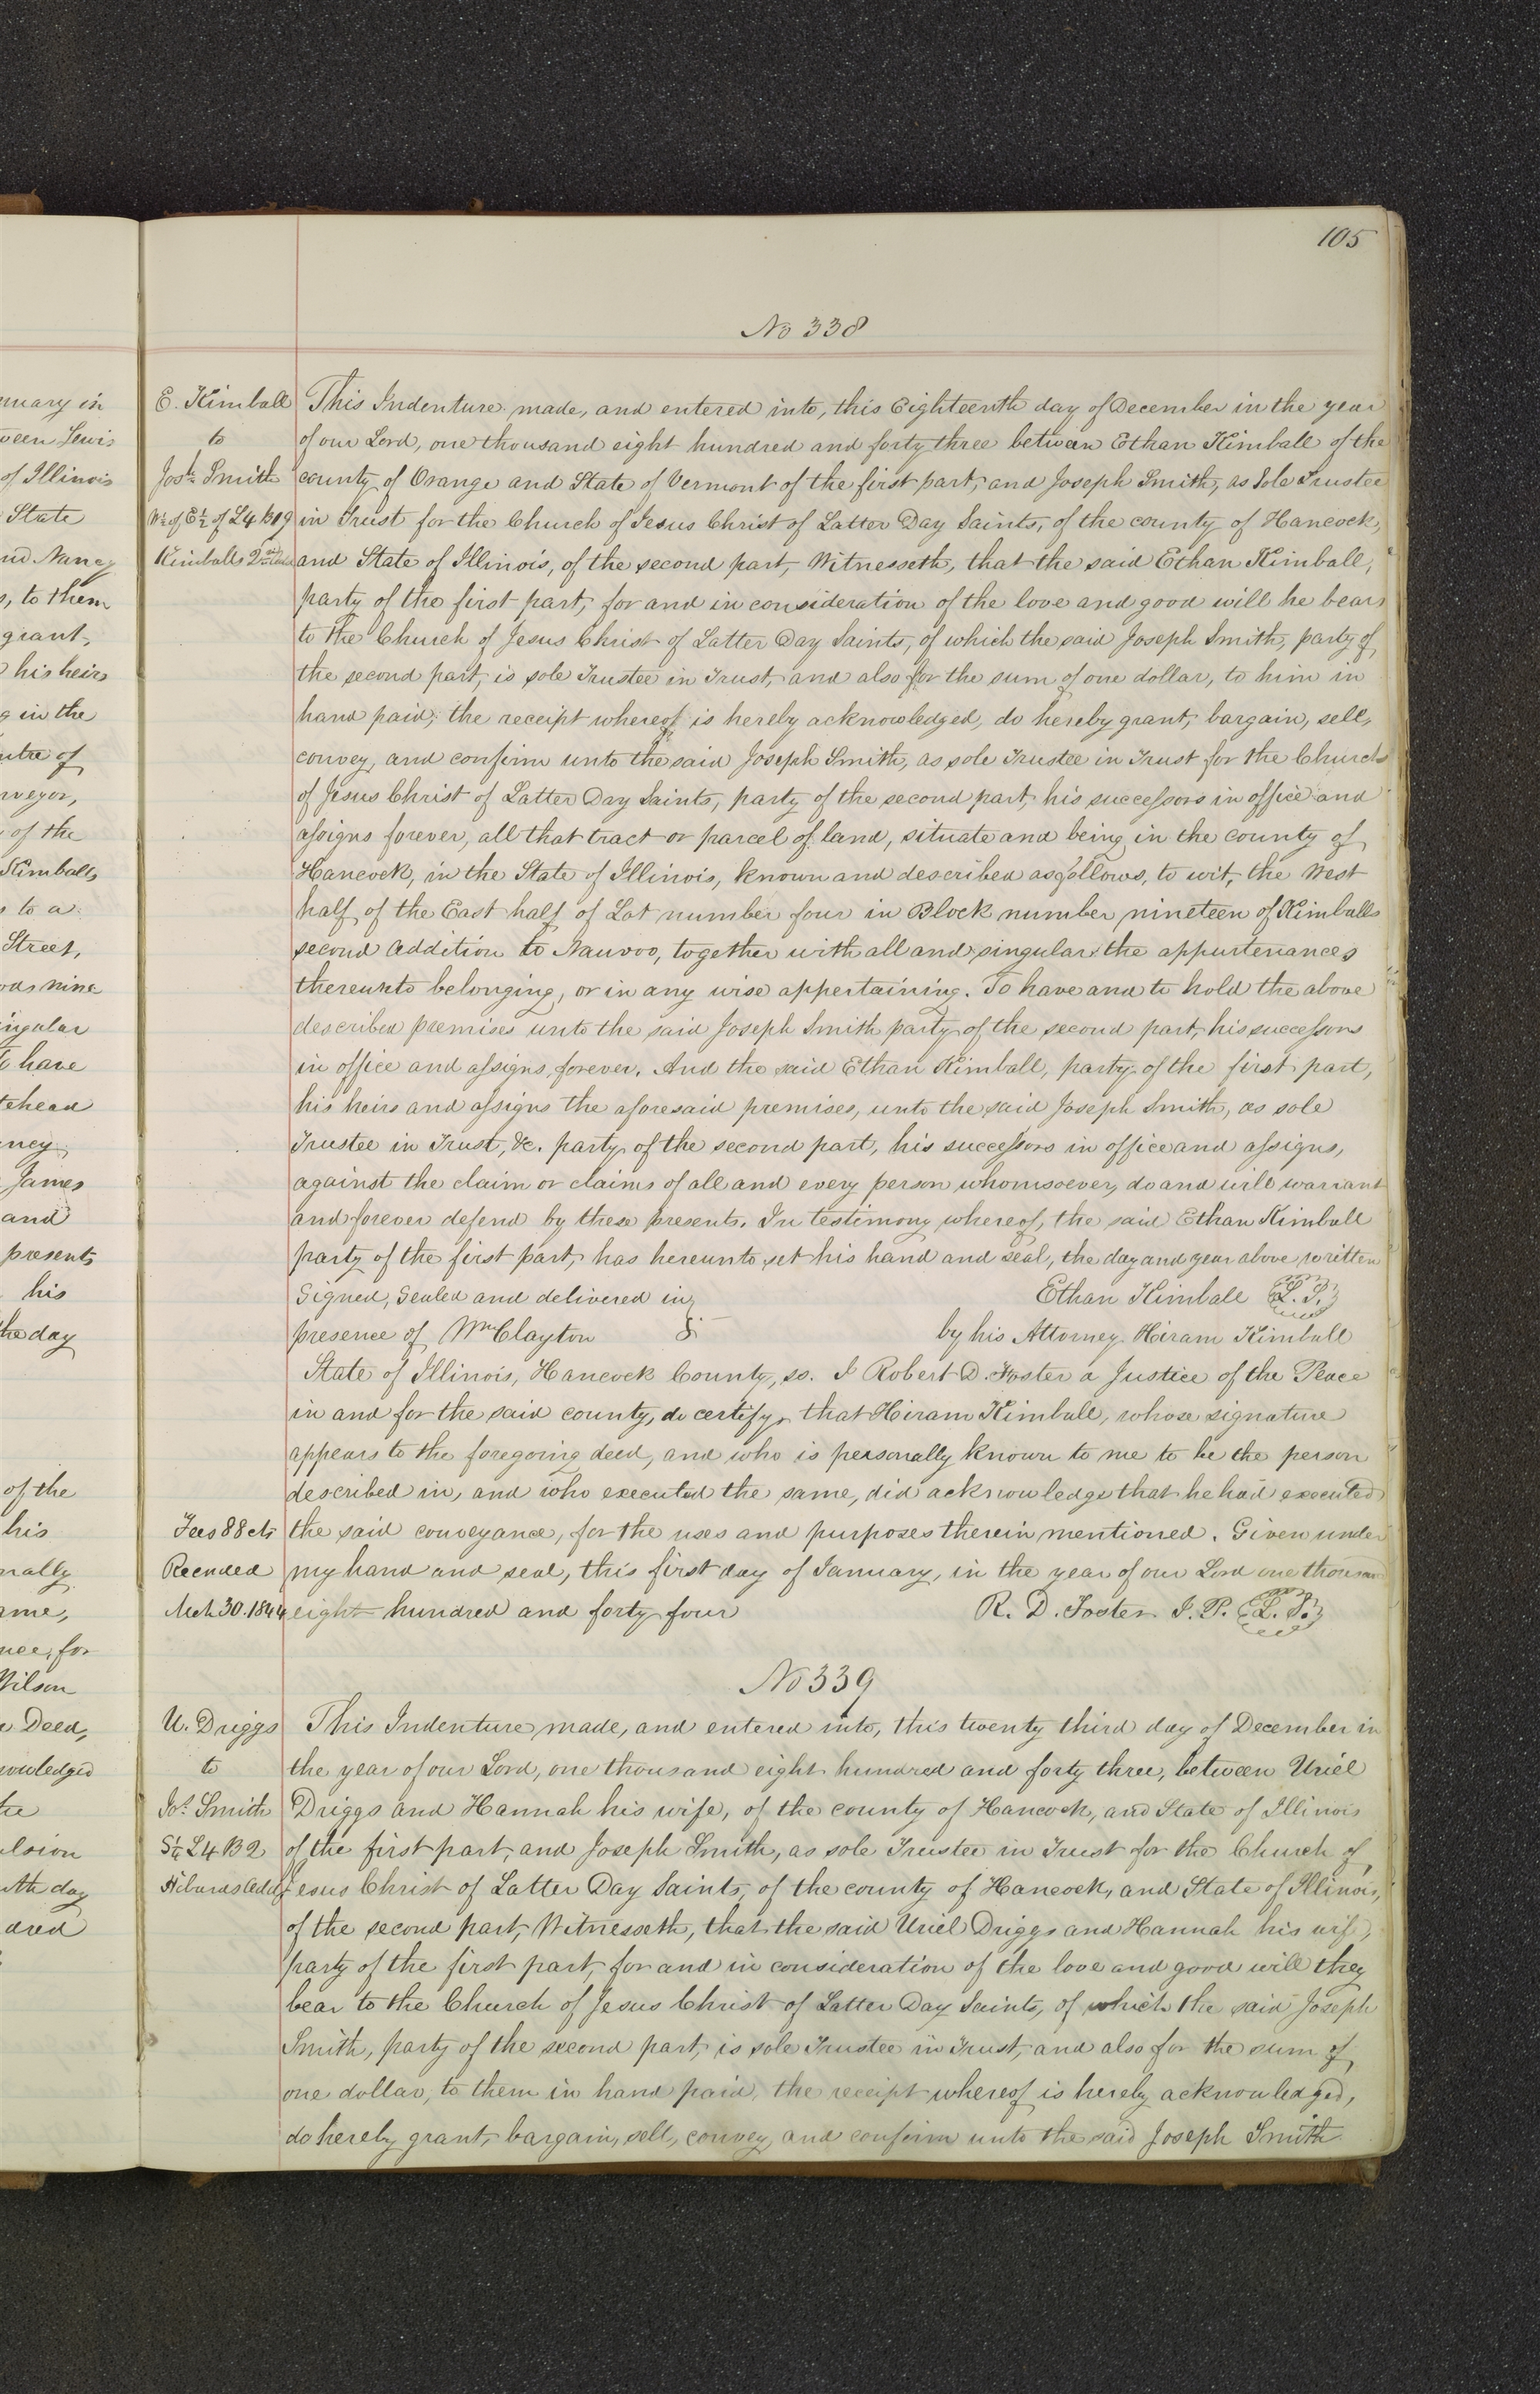 105
No 338
E. Kimball
to
Josh. Smith
W½ of E½ of L4 B19
Kimballs 2nd Add
This Indenture made, and entered into, this Eighteenth day of December in the year
of our Lord, one thousand eight hundred and forty three between Ethan Kimball of the
county of Orange and State of Vermont of the first part, and Joseph Smith, as Sole Trustee
in Trust for the Church of Jesus Christ of Latter Day Saints, of the county of Hancock,
and State of Illinois, of the second part, Witnesseth, that the said Ethan Kimball,
party of the first part, for and in consideration of the love and good will he bears
to the Church of Jesus Christ of Latter Day Saints, of which the said Joseph Smith, party of
the second part, is sole Trustee in Trust, and also for the sum of one dollar, to him in
hand paid, the receipt whereof is hereby acknowledged, do hereby grant, bargain, sell,
convey, and confirm unto the said Joseph Smith, as sole Trustee in Trust for the Church
of Jesus Christ of Latter Day Saints, party of the second part, his successors in office and
assigns forever, all that tract or parcel of land, situate and being in the county of
Hancock, in the State of Illinois, known and described as follows, to wit, the West
half of the East half of Lot number four in Block number nineteen of Kimballs
second Addition to Nauvoo, together with all and singular the appurtenances
thereunto belonging, or in any wise appertaining. To have and to hold the above
described premises unto the said Joseph Smith party of the second part, his successors
in office and assigns, forever. And the said Ethan Kimball, party of the first part,
his heirs and assigns the aforesaid premises, unto the said Joseph Smith, as sole
Trustee in Trust, &c. party of the second part, his successors in office and assigns,
against the claim or claims of all and every person whomsoever, do and will warrant
and forever defend by these presents. In testimony whereof, the said Ethan Kimball
party of the first part, has hereunto set his hand and seal, the day and year above written
Signed, Sealed and delivered in Ethan Kimball L.S.
presence of Wm Clayton by his Attorney Hiram Kimball
State of Illinois, Hancock County, ss. I Robert D. Foster a Justice of the Peace
in and for the said county, do certify, that Hiram Kimball, whose signature
appears to the foregoing deed, and who is personally known to me to be the person
described in, and who executed the same, did acknowledge that he had executed
the said conveyance, for the uses and purposes therein mentioned. Given under
my hand and seal, this first day of January, in the year of our Lord one thousand
eight hundred and forty four R. D. Foster J. P. L.S.
Fees 88 cts
Recorded
Mch 30. 1844
No 339
U. Driggs
to
Jos. Smith
S¼ L4 B2
Hibards Add
This Indenture made, and entered into, this twenty third day of December in
the year of our Lord, one thousand eight hundred and forty three, between Uriel
Driggs and Hannah his wife, of the county of Hancock, and State of Illinois
of the first part, and Joseph Smith, as sole Trustee in Trust for the Church of
Jesus Christ of Latter Day Saints, of the county of Hancock, and State of Illinois,
of the second part, Witnesseth, that the said Uriel Driggs and Hannah his wife,
party of the first part, for and in consideration of the love and good will they
bear to the Church of Jesus Christ of Latter Day Saints, of which the said Joseph
Smith, party of the second part, is sole Trustee in Trust, and also for the sum of
one dollar, to them in hand paid, the receipt whereof is hereby acknowledged,
do hereby grant, bargain, sell, convey, and confirm unto the said Joseph Smith